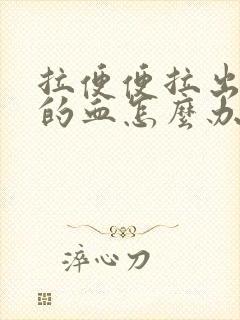 拉便便拉出
的血怎麼办
淬心刀